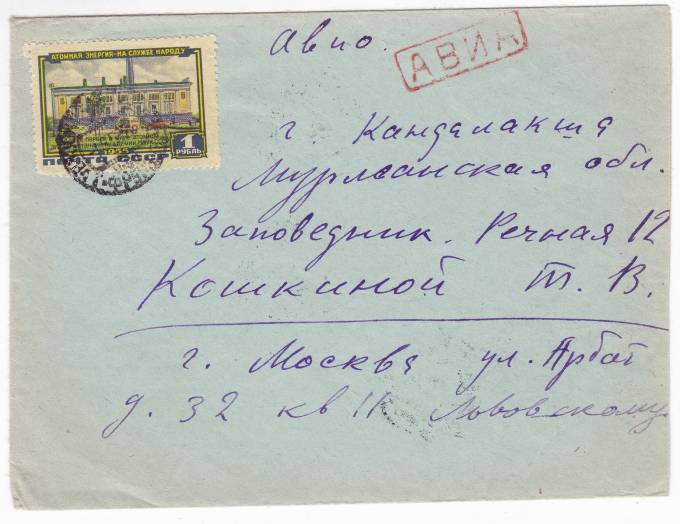 АТОМНАЯ ЭНЕРГИЯ-НА СЛУЖБЕ НАРОДУ
1955
ПОЧТА СССР
1
РУБЛЬ
Авио.
АВИА
г Кандалакша
Мурманская обл.
Заповедник. Речная 12
Кошкиной Т. В.
г. Москва ул. Арбат
д. 32 кв 11 Львовскому